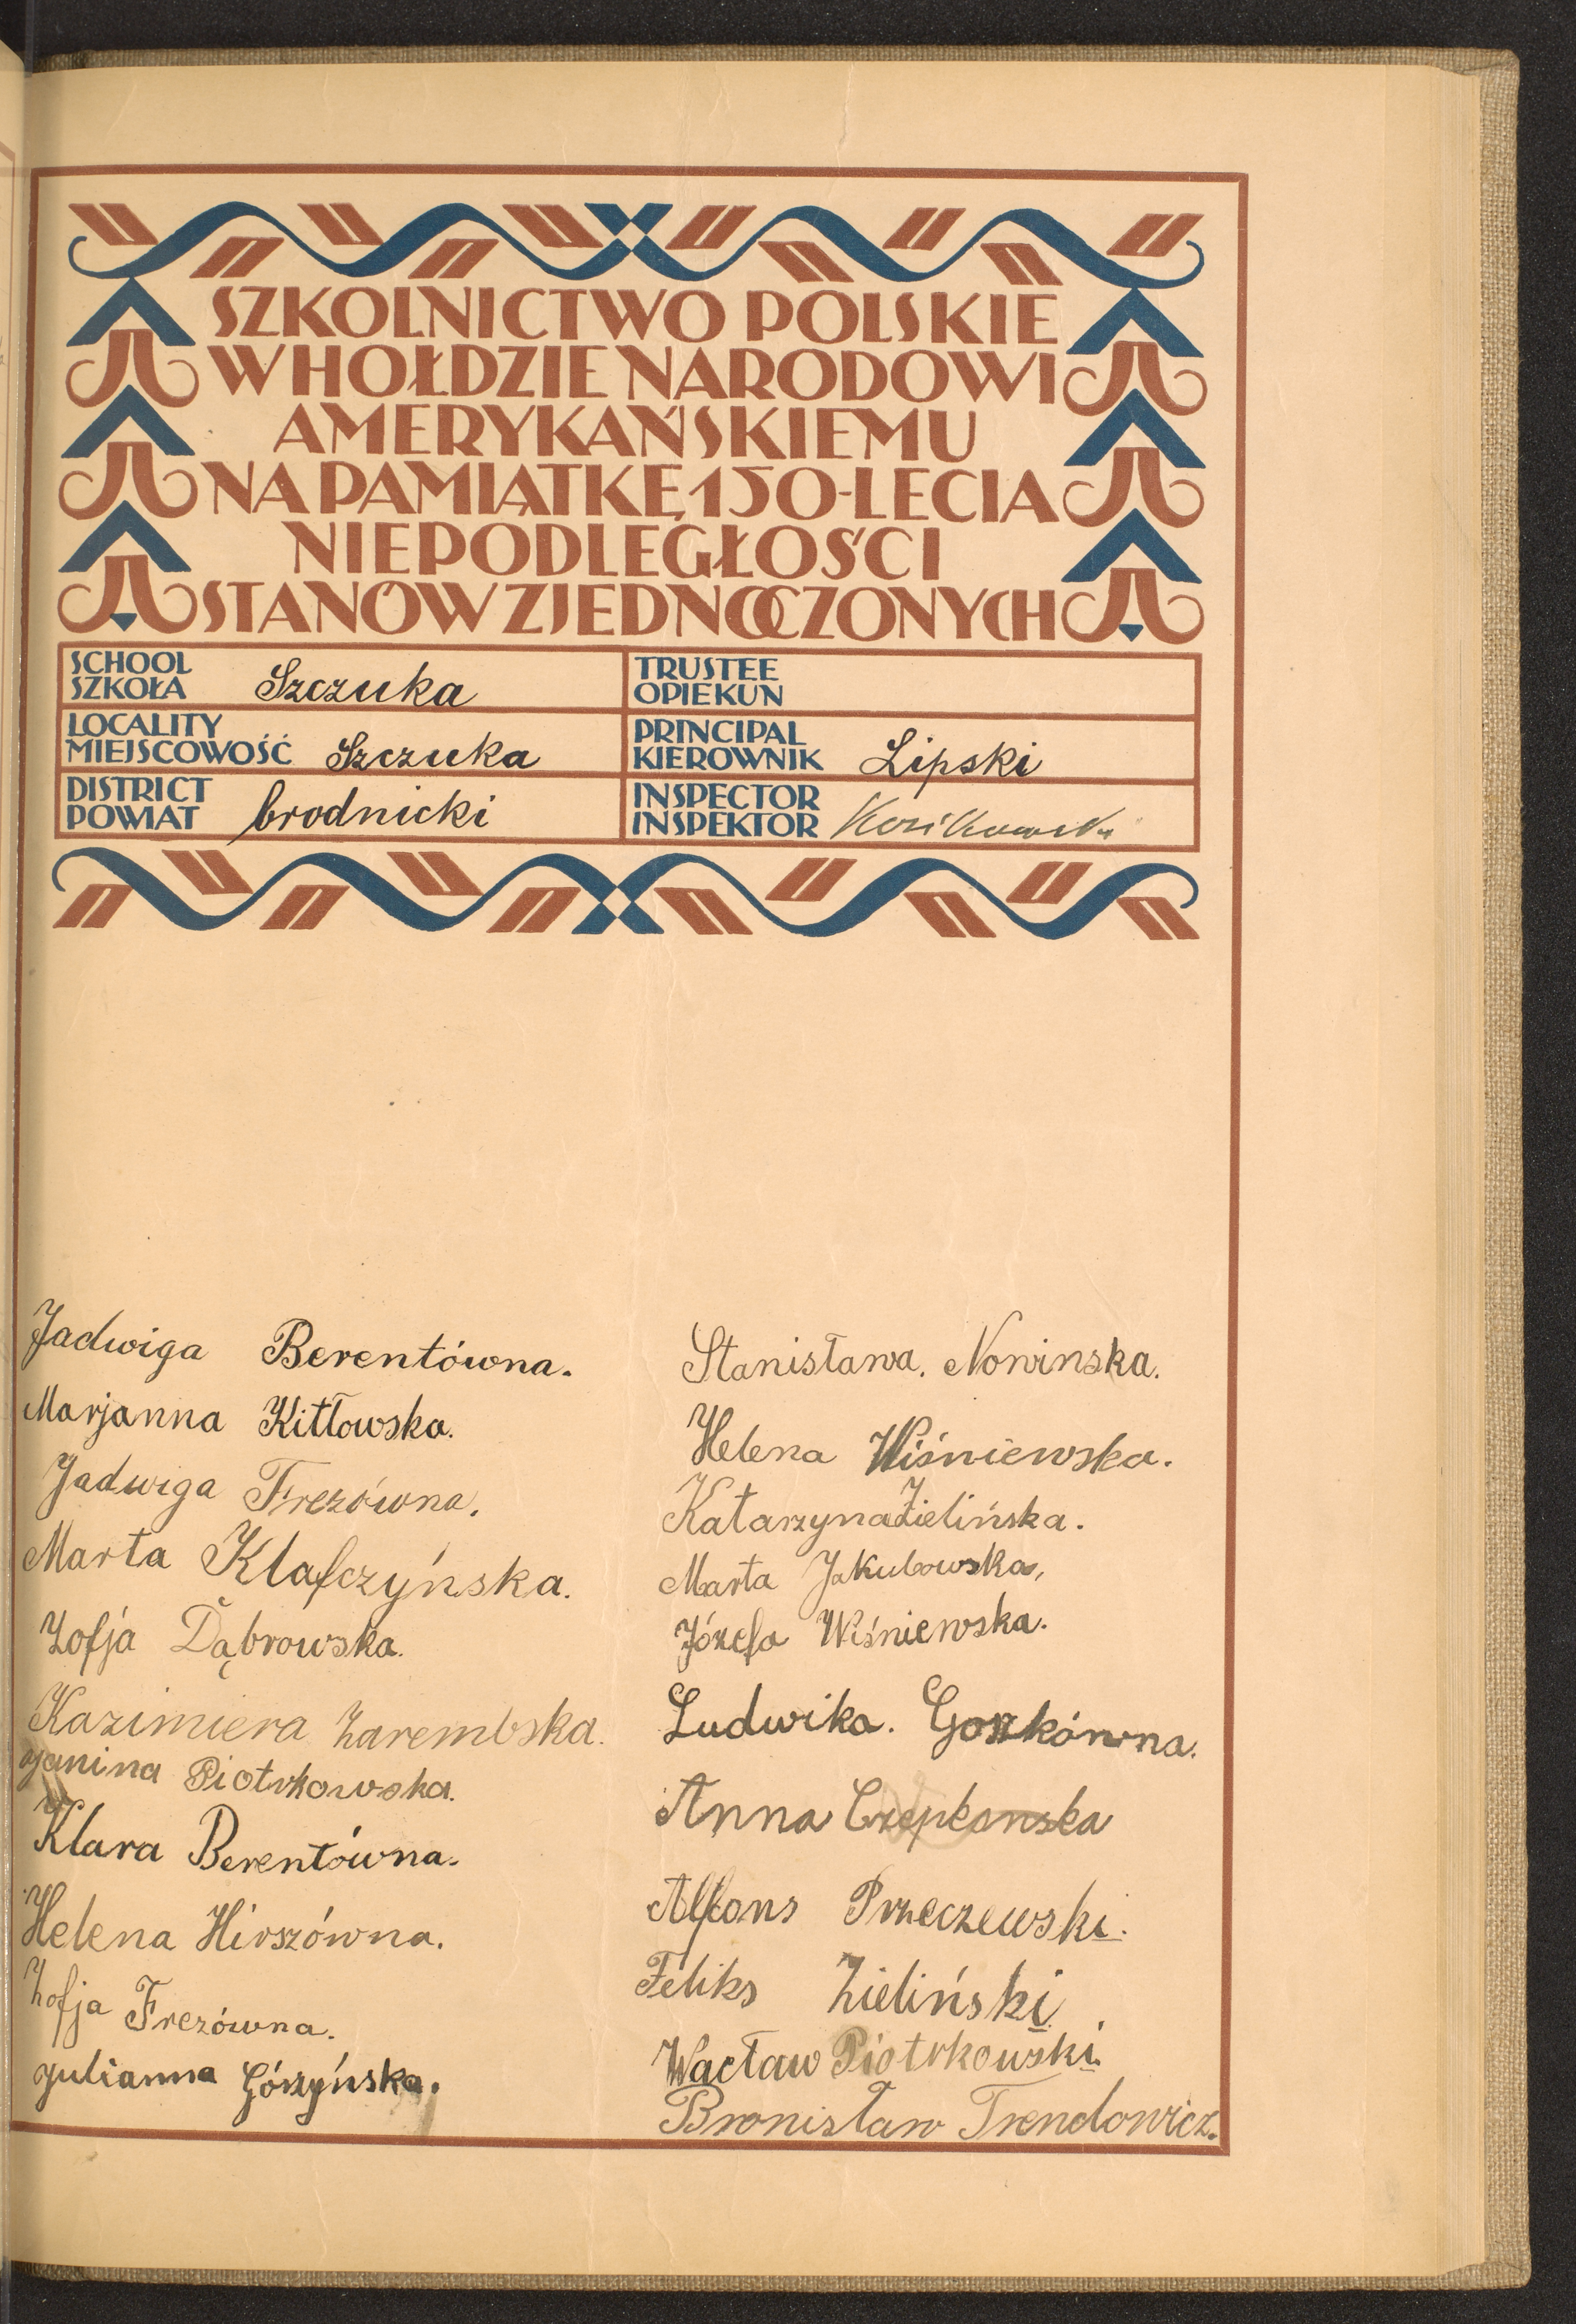 SZKOLNICTWO POLSKIE
W HOŁDZIE NARODOWI
AMERYKAŃSKIEMU
NA PAMIĄTKĘ 150-LECIA
NIEPODLEGŁOŚCI
STANÓW ZJEDNOCZONYCH
SCHOOL
SZKOŁA Szczuka
TRUSTEE
OPIEKUN
LOCALITY
MIEJSCOWOŚĆ Szczuka
PRINCIPAL
KIEROWNIK Lipski
DISTRICT
POWIAT brodnicki
INSPECTOR
INSPEKTOR
Jadwiga Berentówna.
Marjanna Kitłowska.
Jadwiga Frezówna.
Marta Klafczyńska.
Zofja Dąbrowska.
Kazimiera Zarembska.
Janina Piotrkowska.
Klara Berentówna.
Helena Hirszówna.
Zofja Frezówna.
Julianna Górzyńska.
Stanisława. Nowinska.
Helena Wiśniewska.
Katarzyna Zielińska.
Marta Jakubowska,
Józefa Wiśniewska.
Ludwika. Gorzkówna.
Anna
Alfons Przeczewski.
Feliks Zieliński.
Wacław Piotrkowski.
Bronisław Trendowicz.